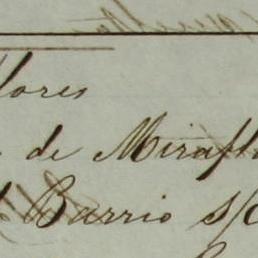 lores
de Mirafl
Barrio s/